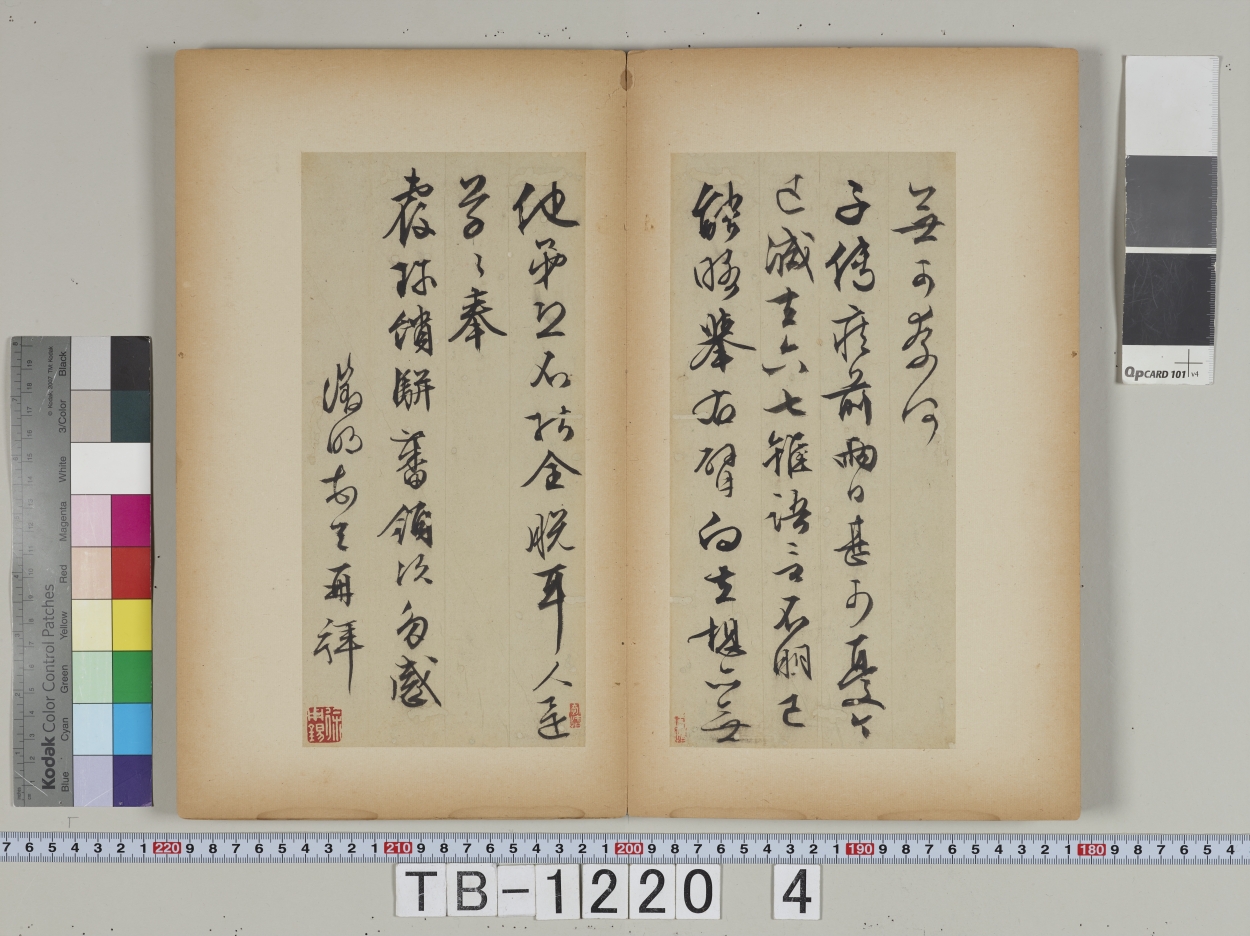 無可奈何
子傳疾前兩日甚可憂今
已減去六七雖語言不明已
能略舉右臂向去想亦無
他第恐不能全脫耳人還
草々奉
覆珎饋駢蕃領次多感
徵明頓首再拜
Kodak Color Control Patches
Blue Cyan Green Yellow Red Magenta White 3/Color Black
QPCARD 101 v4
7 6 5 4 3 2 1 220 9 8 7 6 5 4 3 2 1 210 9 8 7 6 5 4 3 2 1 200 9 8 7 6 5 4 3 2 1 190 9 8 7 6 5 4 3 2 1 180 9 8 7 6 5 4
TB-1220 4